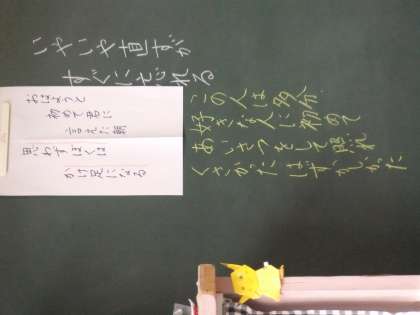 いやいや直すが
すぐに
おはようと
初めて君に
言えた朝
思わずぼくは
かけ足になる
この人は多分
好きな人に初めて
あいさつをして照れ
くさかったはずかしかった